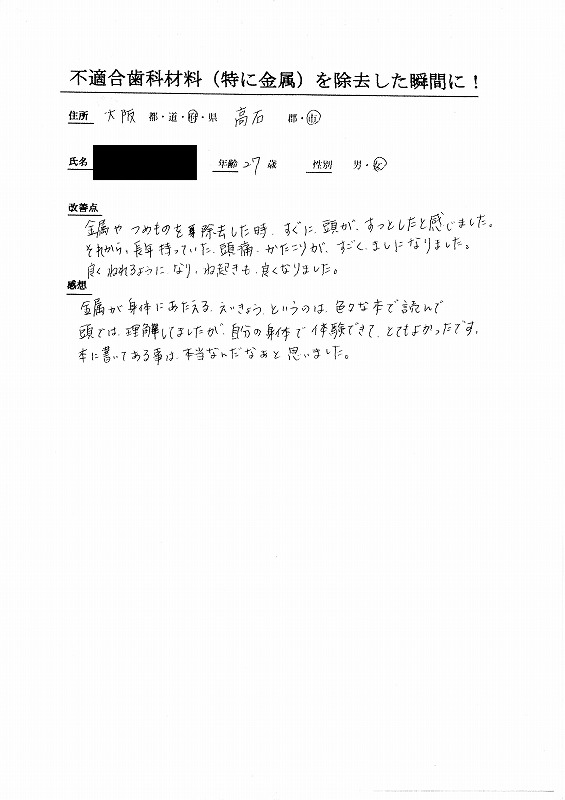 不適合歯科材料（特に金属）を除去した瞬間に！
住所 大阪 都・道・府・県 高石 郡・市
氏名 年齢 27 歳 性別 男・女
改善点
金属や つめものを 除去した時、すぐに、頭が、すっとしたと感じました。
それから、長年持っていた、頭痛、かたこりが、すごく、ましになりました。
良くねれるように、なり、ね起きも、良くなりました。
感想
金属が身体にあたえる、えいきょう、というのは、色々な本で読んで
頭では、理解してましたが、自分の身体で体験できて、とてもよかったです。
本に書いてある事は、本当なんだなあと思いました。